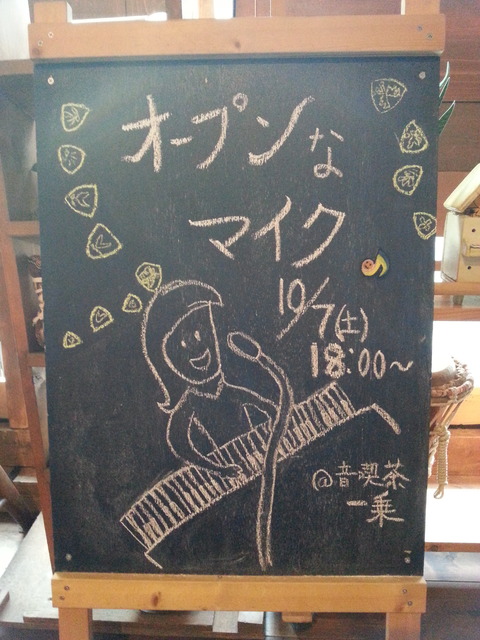 オープンな
マイク
10/7(土)
18:00～
@音喫茶
一乗